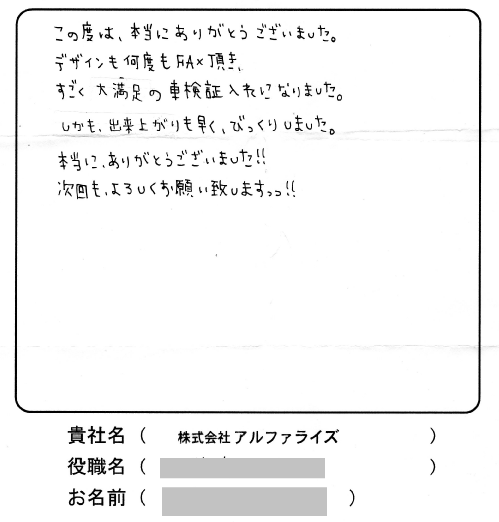 この度は、本当にありがとうございました。
デザインも何度もFAX頂き、
すごく大満足の車検証入れになりました。
しかも、出来上がりも早く、びっくりしました。
本当に、ありがとうございました!!
次回も、よろしくお願い致しますっっ!!
貴社名(　株式会社アルファライズ　)
役職名(　)
お名前(　)